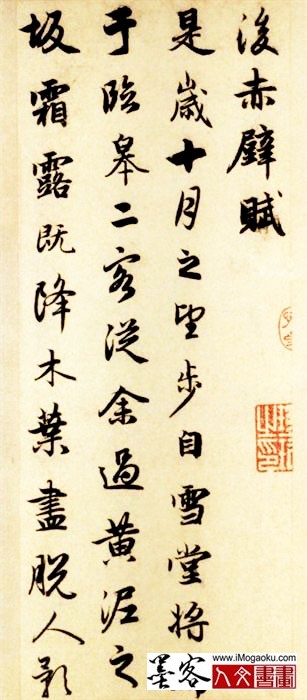 後赤壁賦
是歲十月之望步自雪堂將
于臨皋二客從余過黃泥之
坂霜露既降木葉盡脫人影
www.iMogaoku.com
墨客
人文書畫